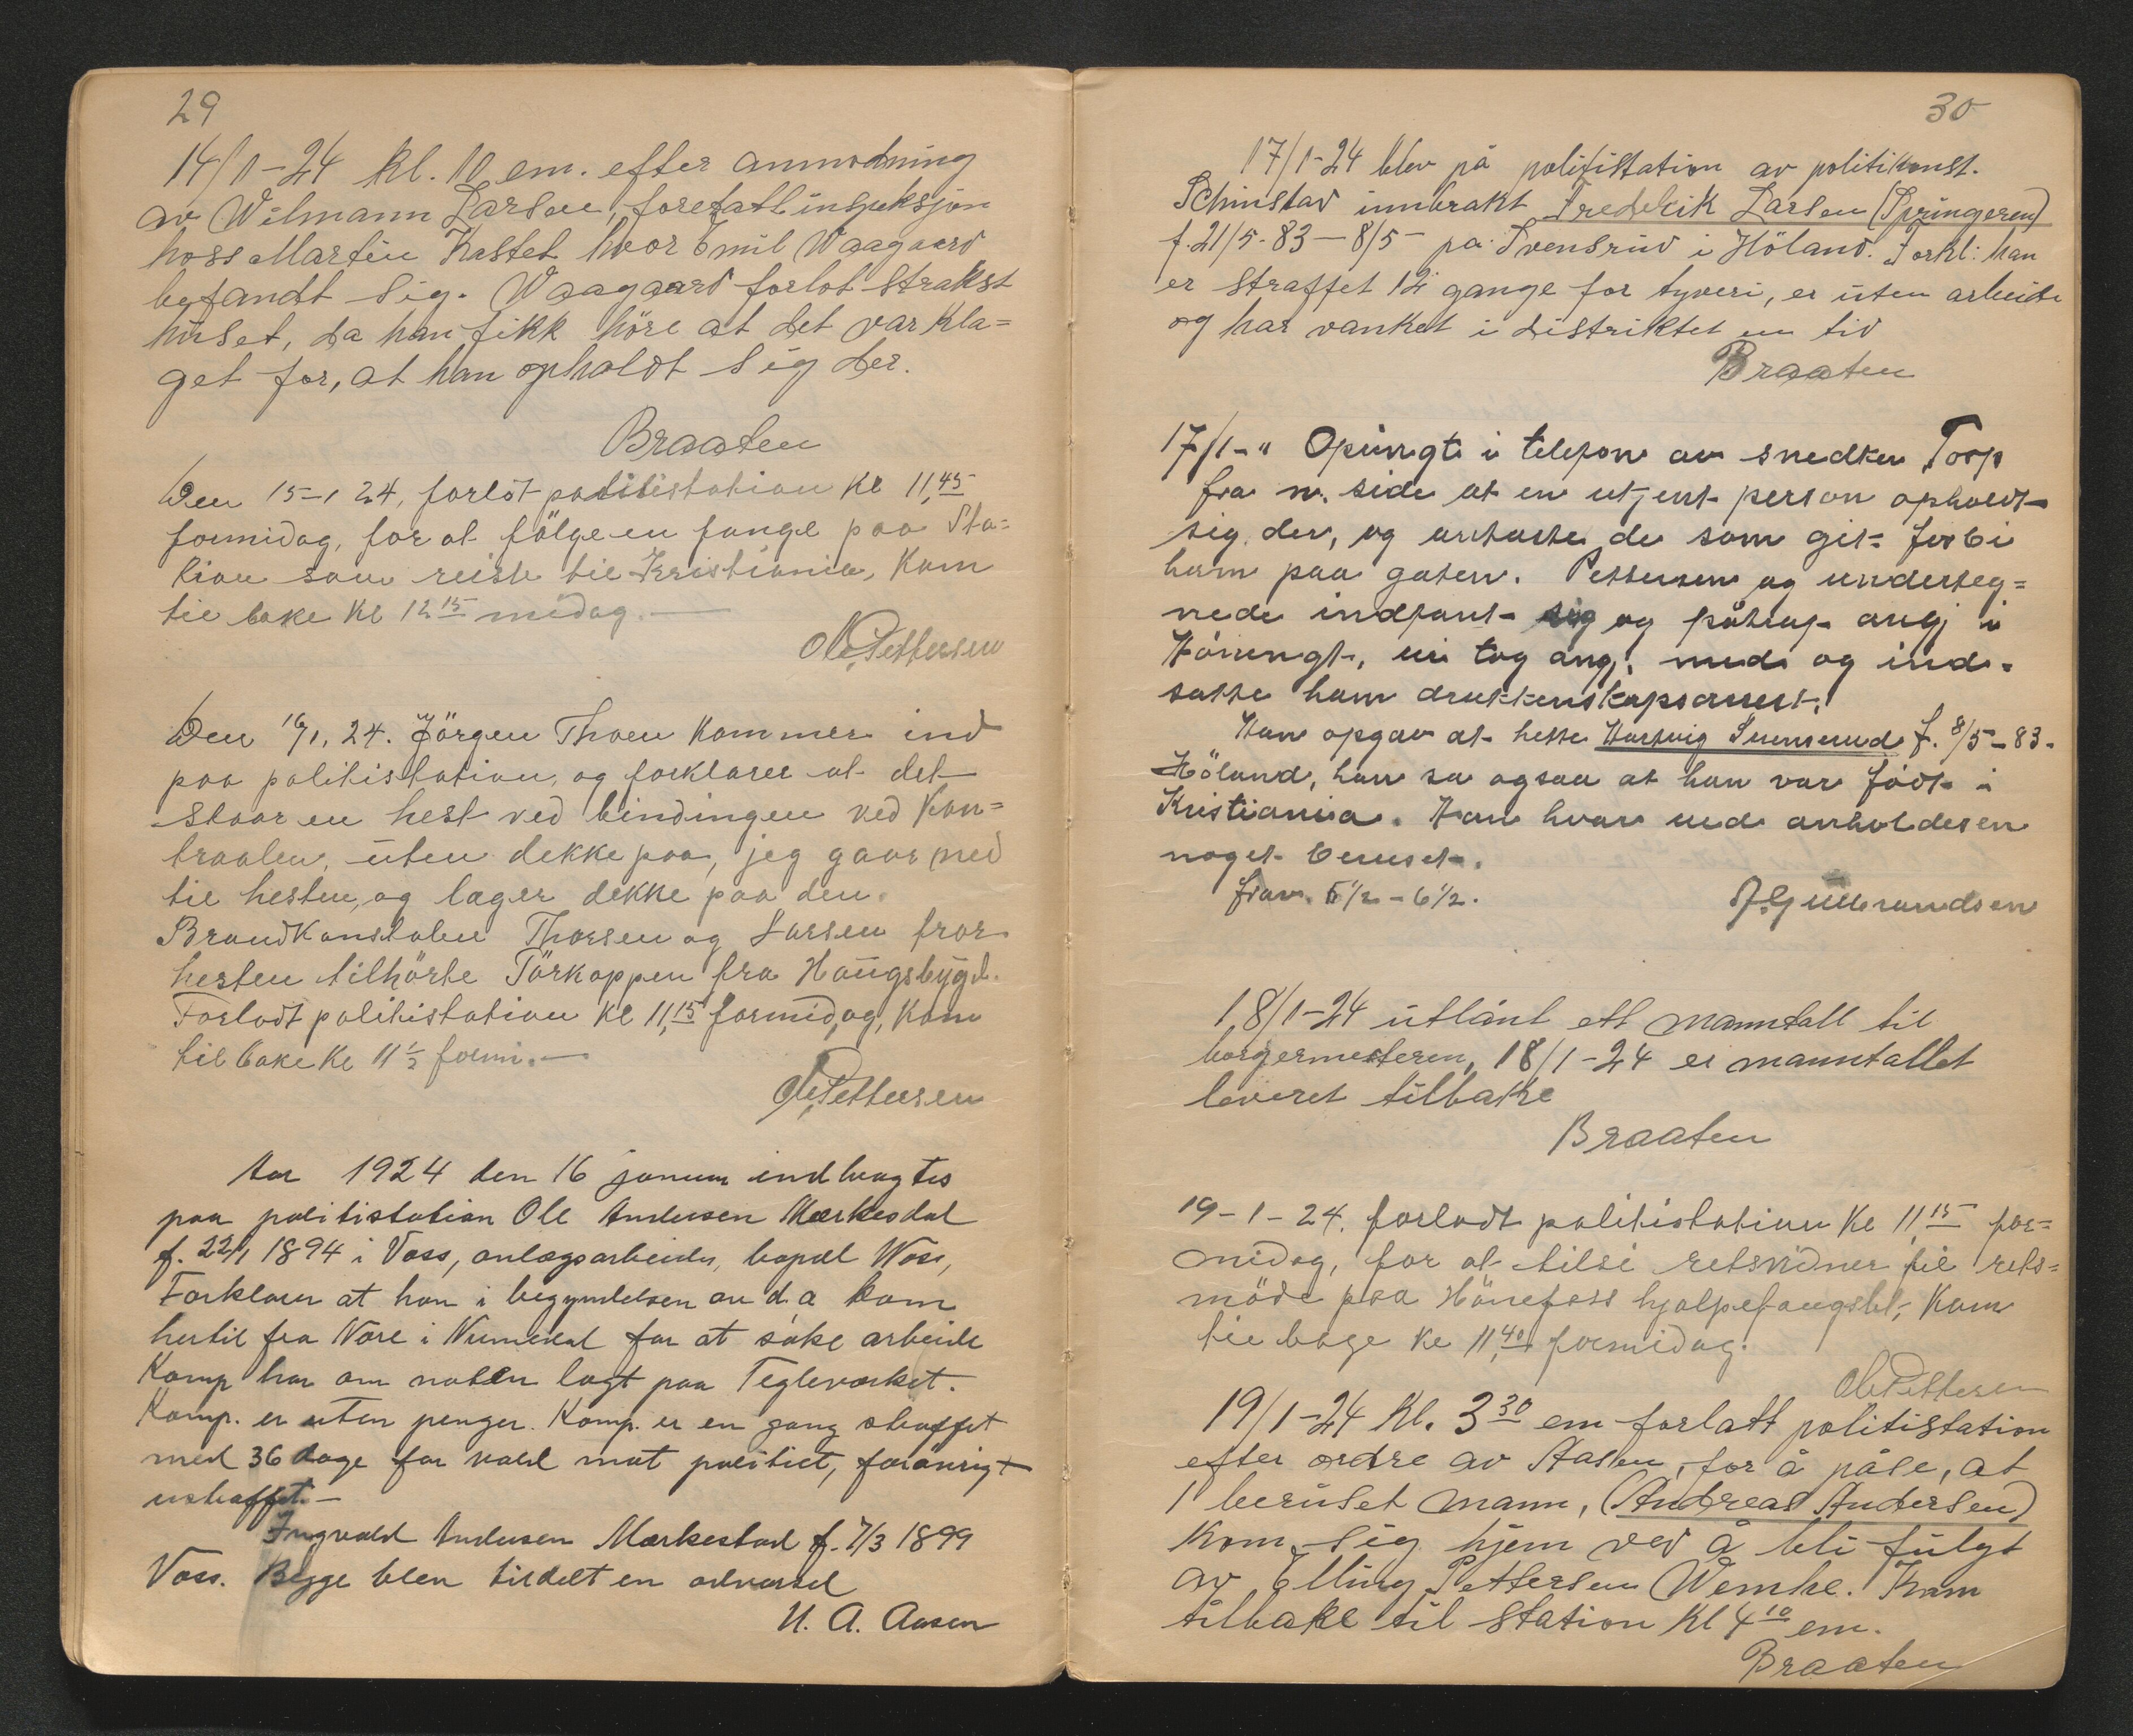 29
14/1-24 kl. 10 em. efter anmodning
av Wilmann Larsen, foretatt inspeksjon
hoss Martin Kastet hvor Emil Waagaard
befandt sig. Waagaard forlot strakst
huset, da han fikk höre at det var kla=
get for, at han opholdt sig der.
Braaten
Den 15-1 24, forlot politistation kl 11,45
formidag, for at fölge en fange paa Sta=
tion som reiste til Kristiania, Kom
til bake kl 12 15 midag. —
Ole Pettersen
Den 16/1, 24. Jörgen Thoen kommer ind
paa politistation, og forklarer at det
staar en hest ved bindingen ved Kon=
traalen, uten dekke paa, jeg gaar ned
til hesten, og lager dekke paa den.
Brandkonstablen Thorsen og Larsen tror
hesten tilhörte Törkoppen fra Haugsbygd.
Forlodt politistation kl 11,15 formidag, kom
til bake kl 11 1/2 formi. —
Ole Pettersen
Aar 1924 den 16 januar indbragtes
paa politistation Ole Andersen Mærkesdal
f. 22/1 1894 i Voss, anlægsarbeider, bopæl Woss,
Forklarer at han i begyndelsen av d.a kom
hertil fra Nore i Numedal for at söke arbeide
Komp har om natten lagt paa Tegleværket.
Komp. er uten penger. Komp. er en gang straffet
med 36 dage for vold mot politiet, forövrigt
ustraffet. —
Ingvald Andersen Mærkestad f. 7/3 1899
Voss. Begge blev tildelt en advarsel
N. A. Aasen
30
17/1-24 blev på politistation av politikonst.
Schinstad innbrakt Frederik Larsen (Springeren)
f. 21/5-83 — 8/5 - på Svensrud i Höland. Forkl: han
er straffet 12 gange for tyveri, er uten arbeide
og har vanket i distriktet en tid
Braaten
17/1-" Opringt i telefon av snedker Torp
fra n. side at en utjent person opholdt
sig der, og antastede de som gik forbi
ham paa gaten. Pettersen og underteg=
nede indfant sig og påtraf angj i
Hönengt., vi tog angj. med og ind-
satte ham drukkenskapsarrest.
Han opgav at hette Hartvig Svensrud f. 8/5-83.
Höland, han sa ogsaa at han var födt i
Kristiania. Han hvar ved anholdesen
noget beruset.
frav. 5 1/2 - 6 1/2.
J. Gulbrandsen
18/1-24 utlånt ett manntall til
borgermesteren, 18/1-24 er manntallet
leveret tilbake
Braaten
19-1-24. forlodt politistation kl 11,15 for=
midag, for at tilsi retsvidner til rets=
möde paa Hönefoss hjalpefangsel, Kom
til bage kl 11,40 formidag.
Ole Pettersen
19/1-24 kl. 3 30 em forlatt politistation
efter ordre av Aasen, for å påse, at
1 beruset mann, (Andreas Andersen)
kom sig hjem ved å bli fulgt
av Elling Pettersen Wemhe. Kom
tilbake til station kl 4 10 em.
Braaten